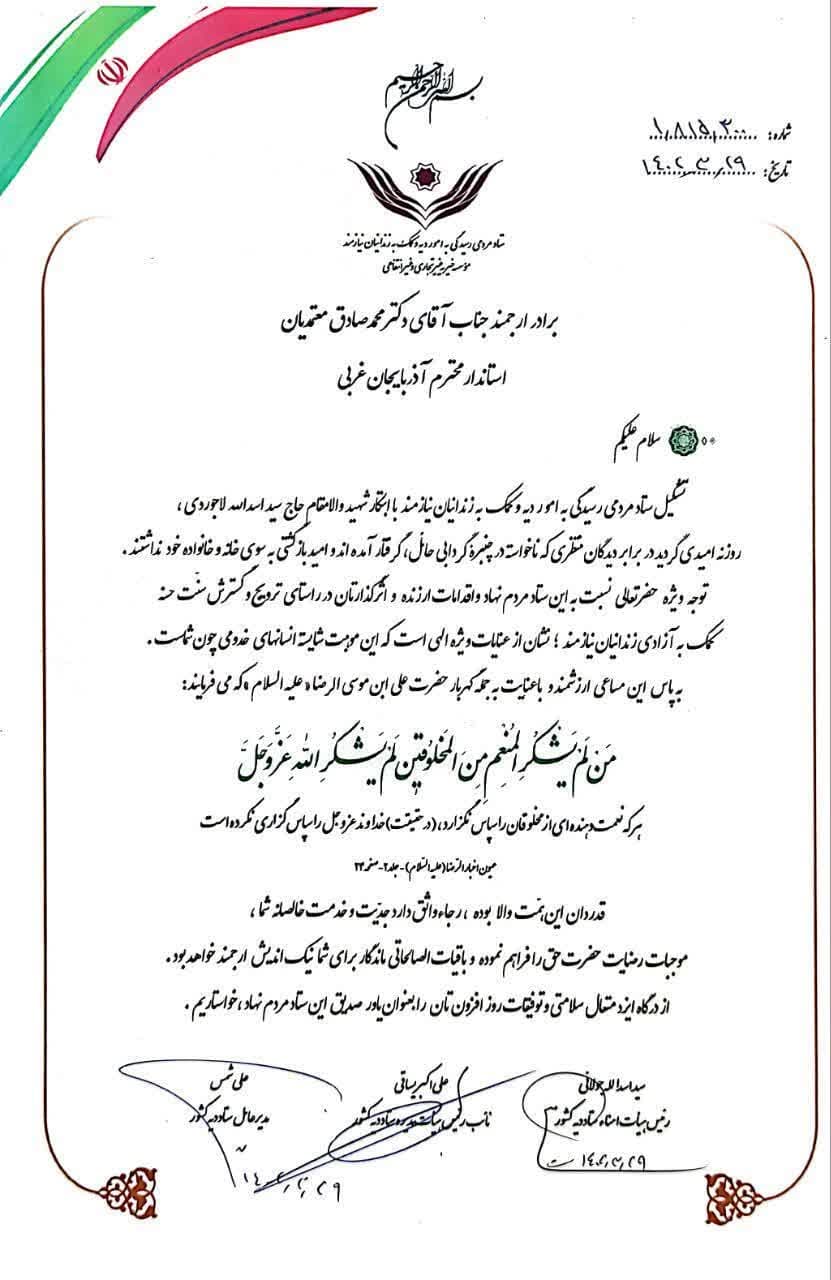 بسم الله الرحمن الرحیم
شماره: ۱،۸۱۵،۳۰۰
تاریخ: ۱۴۰۲،۳،۲۹
ستاد مردمی رسیدگی به امور دیه و کمک به زندانیان نیازمند
مؤسسه خیریه غیرتجاری و غیرانتفاعی
برادر ارجمند جناب آقای دکتر محمد صادق معتمدیان
استاندار محترم آذربایجان غربی
سلام علیکم
تشکیل ستاد مردمی رسیدگی به امور دیه و کمک به زندانیان نیازمند با ابتکار شهید والامقام حاج سید اسدالله لاجوردی ،
روزنه امیدی گردید در برابر دیدگان منتظری که ناخواسته در چنبرهٔ گردابی حائل، گرفتار آمده اند و امید بازگشتی به سوی خانه و خانواده خود نداشتند .
توجه ویژه حضرتعالی نسبت به این ستاد مردم نهاد و اقدامات ارزنده و اثرگذارتان در راستای ترویج و گسترش سنّت حسنه
کمک به آزادی زندانیان نیازمند ؛ نشان از عنایات ویژه الهی است که این موهبت شایسته انسانهای خدومی چون شماست .
به پاس این مساعی ارزشمند و باعنایت به جمله گهربار حضرت علی ابن موسی الرضا « علیه السلام » که می فرمایند:
مَن لَم یَشکُرِ المُنعِمَ مِنَ المَخلوقینَ لَم یَشکُرِ اللهَ عَزَّوَجَلَّ
هر که نعمت دهنده ای از مخلوقان را سپاس نگزارد، (در حقیقت) خداوند عزوجل را سپاس گزاری نکرده است
عیون اخبار الرضا (علیه السلام) - جلد ۲ - صفحه ۲۴
قدردان این همّت والا بوده ، رجاء واثق دارد جدیّت و خدمت خالصانه شما ،
موجبات رضایت حضرت حق را فراهم نموده و باقیات الصالحاتی ماندگار برای شما نیک اندیش ارجمند خواهد بود .
از درگاه ایزد متعال سلامتی و توفیقات روز افزون تان را بعنوان یاور صدیق این ستاد مردم نهاد ، خواستاریم .
سید اسدالله جولائی
رئیس هیأت امناء ستاد دیه کشور
۱۴۰۲،۳،۲۹
علی اکبر بیسائی
نائب رئیس هیأت مدیره ستاد دیه کشور
علی شمس
مدیرعامل ستاد دیه کشور
۱۴۰۲،۳،۲۹